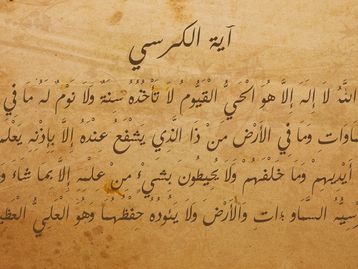 آية الكرسي
اللَّهُ لاَ إِلَهَ إِلاَّ هُوَ الْحَيُّ الْقَيُّومُ لاَ تَأْخُذُهُ سِنَةٌ وَلاَ نَوْمٌ لَهُ مَا فِي
ماوات وَمَا فِي الأَرْضِ مَنْ ذَا الَّذِي يَشْفَعُ عِنْدَهُ إِلاَّ بِإِذْنِهِ يَعْلَم
أَيْدِيهِمْ وَمَا خَلْفَهُمْ وَلاَ يُحِيطُونَ بِشَيْءٍ مِنْ عِلْمِهِ إِلاَّ بِمَا شَاءَ وَ
سِيُّهُ السَّمَاوَاتِ وَالأَرْضَ وَلاَ يَئُودُهُ حِفْظُهُمَا وَهُوَ الْعَلِيُّ الْعَظِي